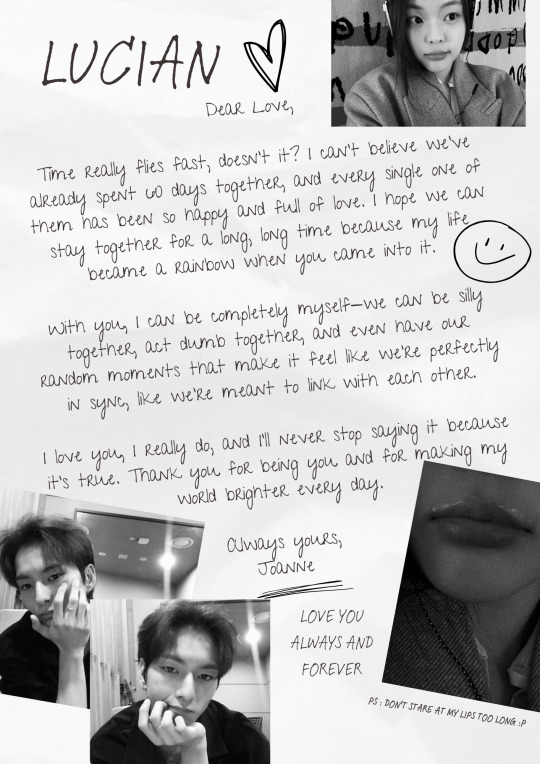 LUCIAN
Dear Love,
Time really flies fast, doesn't it? I can't believe we've
already spent 60 days together, and every single one of
them has been so happy and full of love. I hope we can
stay together for a long, long time because my life
became a rainbow when you came into it.
With you, I can be completely myself—we can be silly
together, act dumb together, and even have our
random moments that make it feel like we're perfectly
in sync, like we're meant to link with each other.
I love you, I really do, and I'll never stop saying it because
it's true. Thank you for being you and for making my
world brighter every day.
Always yours,
Joanne
LOVE YOU
ALWAYS AND
FOREVER
PS : DON'T STARE AT MY LIPS TOO LONG :P